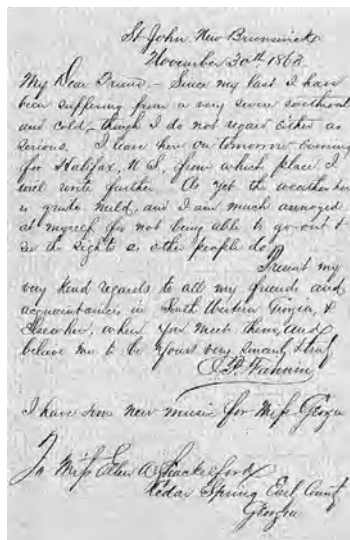 St John New Brunswick
November 30th 186
My Dear Friend - Since my last I have
been suffering from a very severe
and cold, though I do not regard either as
serious. I leave here on tomorrow evening
for Halifax, N.S. from which place I
will write further. As yet the weather here
is quite mild, and I am much annoyed
at myself for not being able to go out &
see the sights as other people do.
Present my
very kind regards to all my friends and
acquaintances in South Western Georgia, &
elsewhere, when you meet them, and
believe me to be yours very sincerely & truly
Fannin
I have some new music for Miss Georgia
To Miss Ellen A Shackelford
Cedar Spring Early County
Georgia